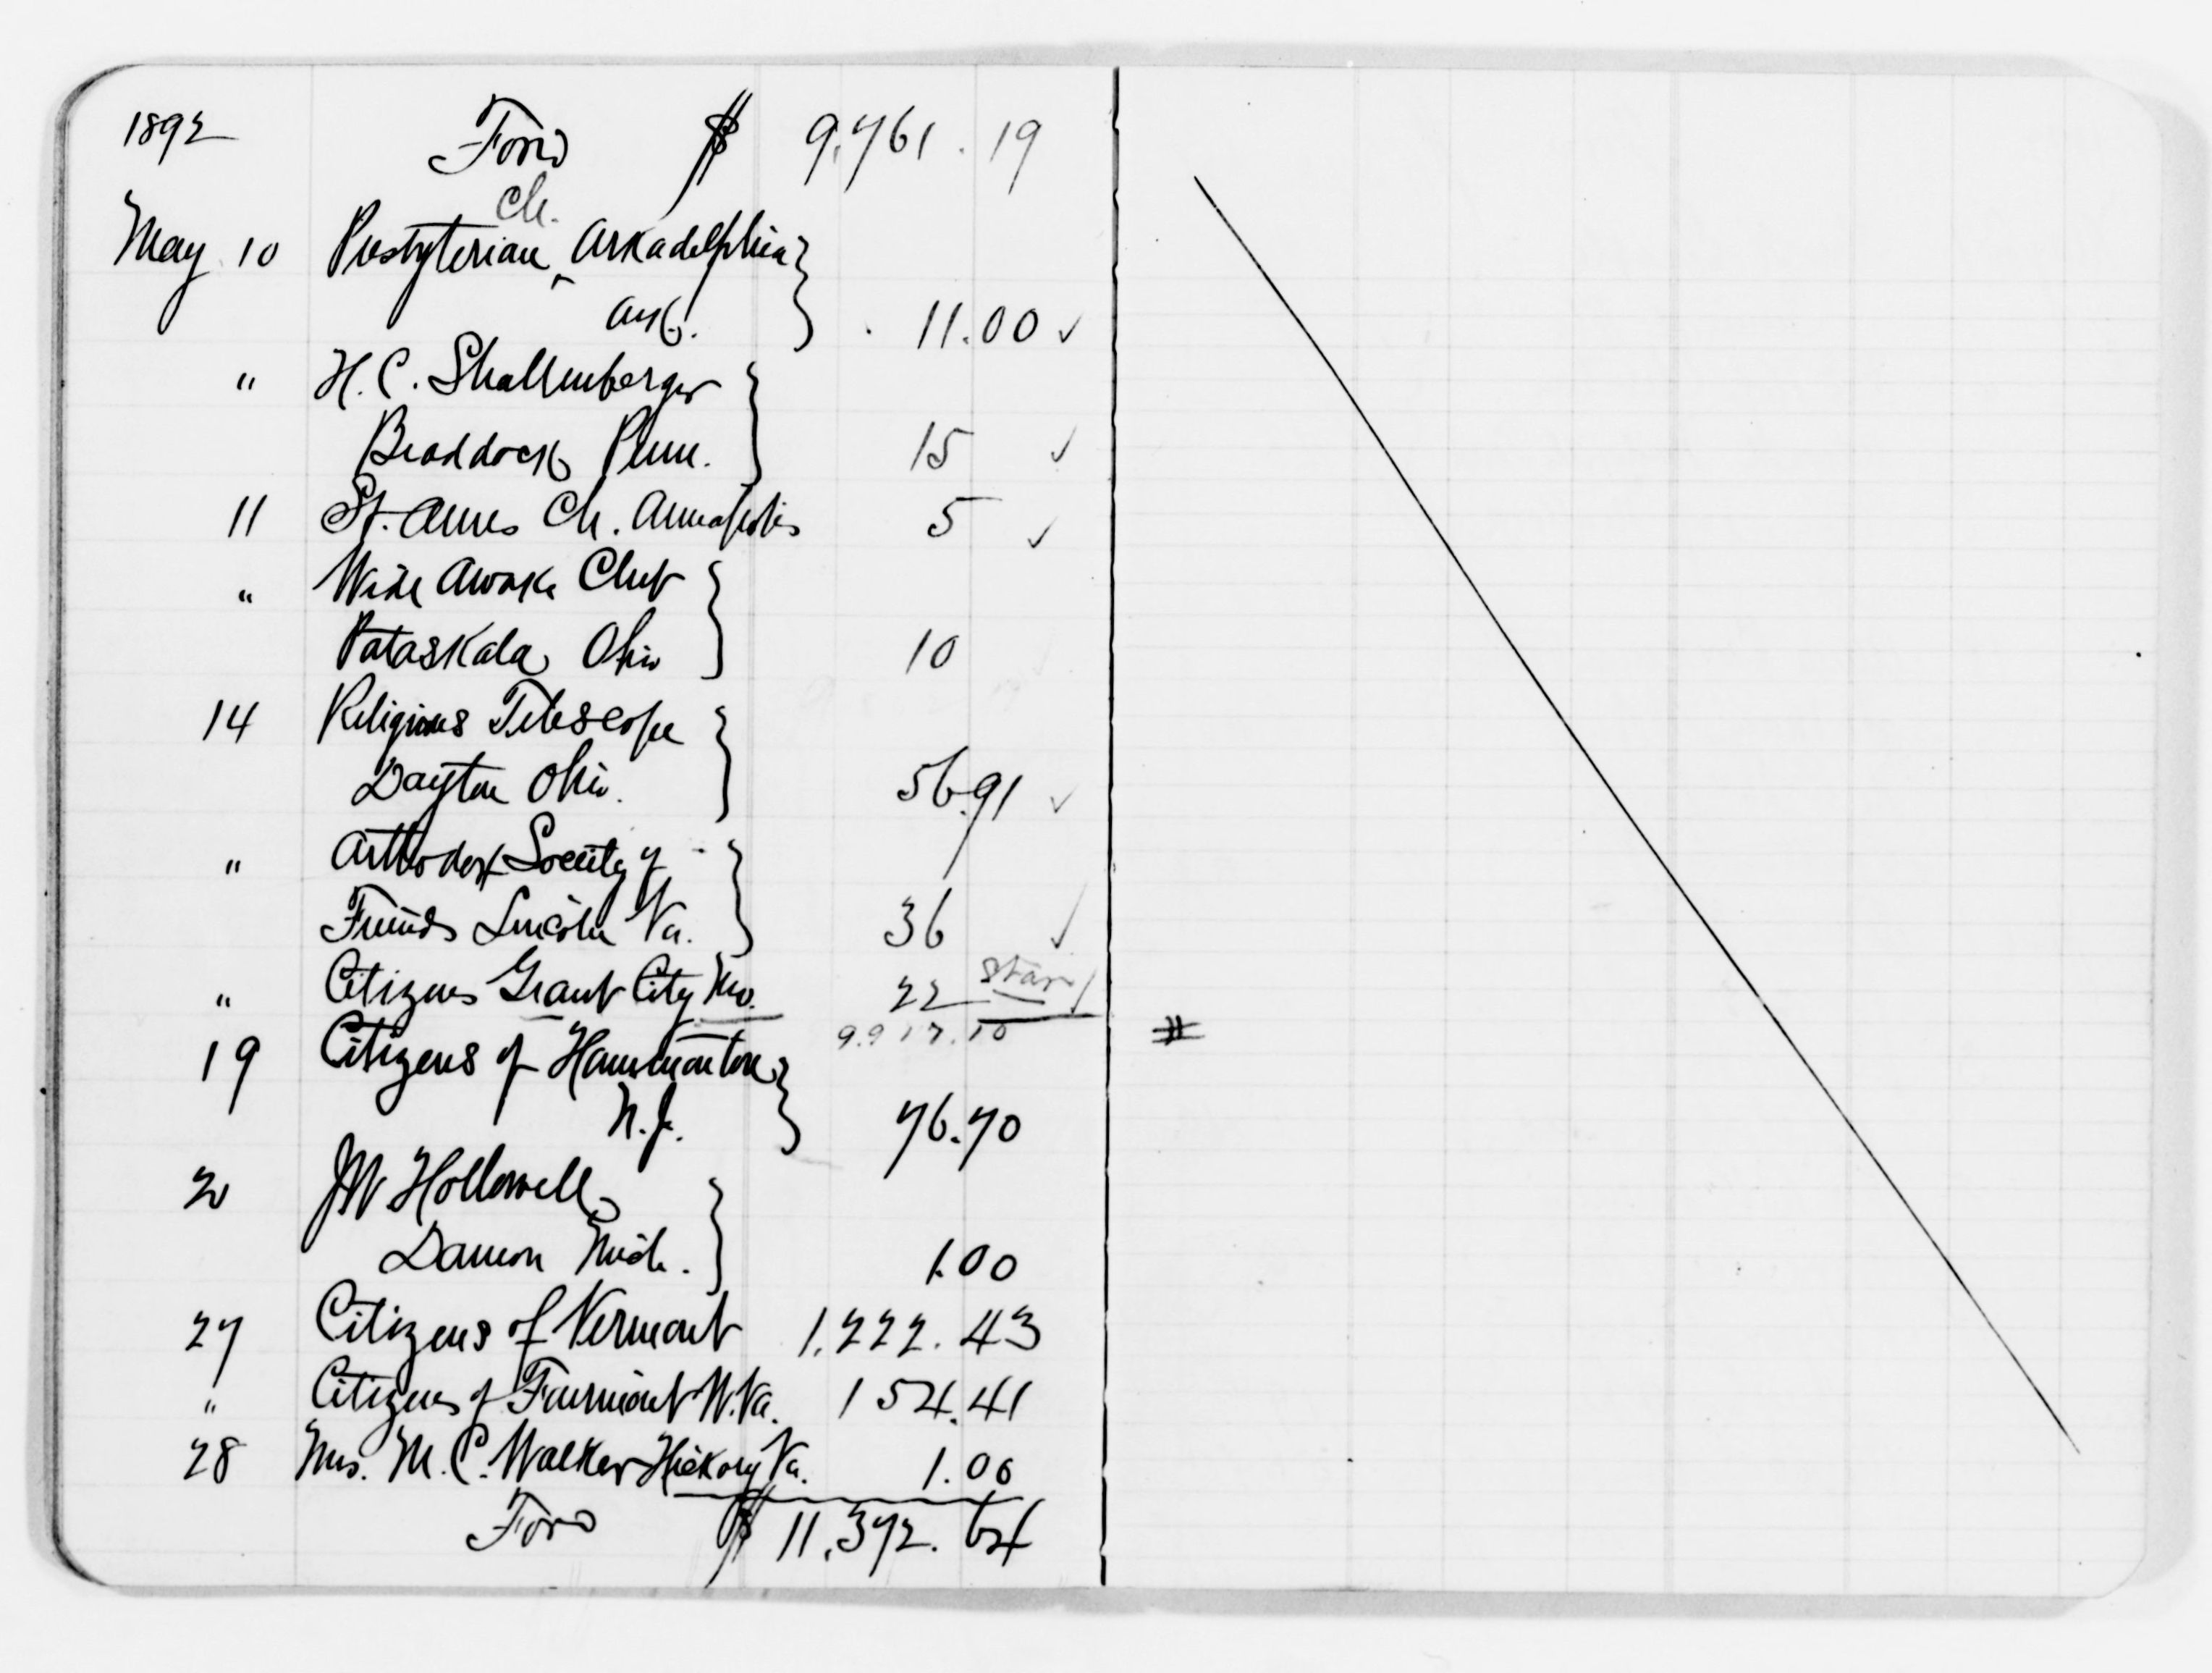 1892 Ford $ 9,761.19
Ch.
May 10 Presbyterian ‸ Arkadelphia
Ark. 11.00 ✓
" H. C. Shallenberger
Braddock Penn. 15 ✓
11 St. Annes Ch. Annapolis 5 ✓
" Wide Awake Club
Pataskala Ohio 10
14 Religious Telescope
Dayton Ohio. 56.91 ✓
" Arthodox Society of
Friends Lincoln Va. 36 ✓
" Citizens Grant City Mo. 22 Star ✓
9.917.10 #
19 Citizens of Hammonton
N.J. 76.70
20 J W Hollowell
Damon Mich. 1.00
27 Citizens of Vermont 1,222.43
" Citizens of Fairmont W.Va. 154.41
28 Mrs. M. C. Walker Hickory Va. 1.00
Ford $ 11,372.64